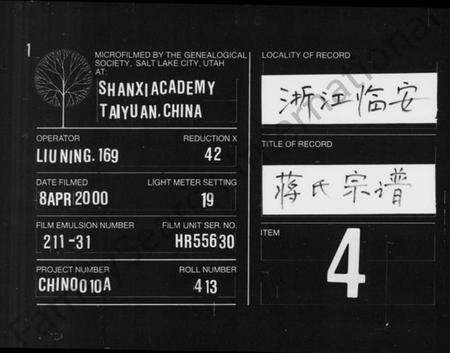 1
MICROFILMED BY THE GENEALOGICAL
SOCIETY, SALT LAKE CITY, UTAH
AT:
SHANXI ACADEMY
TAIYUAN, CHINA
OPERATOR REDUCTION X
LIU NING. 169 42
DATE FILMED LIGHT METER SETTING
8 APR 2000 19
FILM EMULSION NUMBER FILM UNIT SER. NO.
211-31 HR55630
PROJECT NUMBER ROLL NUMBER
CHIN0010A 413
LOCALITY OF RECORD
浙江临安
TITLE OF RECORD
蒋氏宗谱
ITEM
4